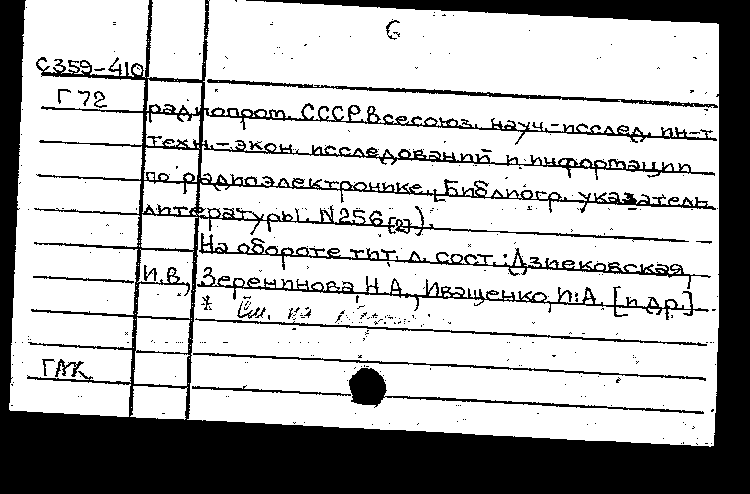 6
С359-410
Г72
радиопром. СССР. Всесоюз. науч.-исслед. ин-т
техн.-экон. исследований и информации
по радиоэлектронике. [Библиогр. указатель
литературы. N256[2]).
На обороте тит. л. сост.: Дзиековская,
И.В., Зеренинова, Н.А., Иващенко, И.А. [и др.]
* См. на
ГАК